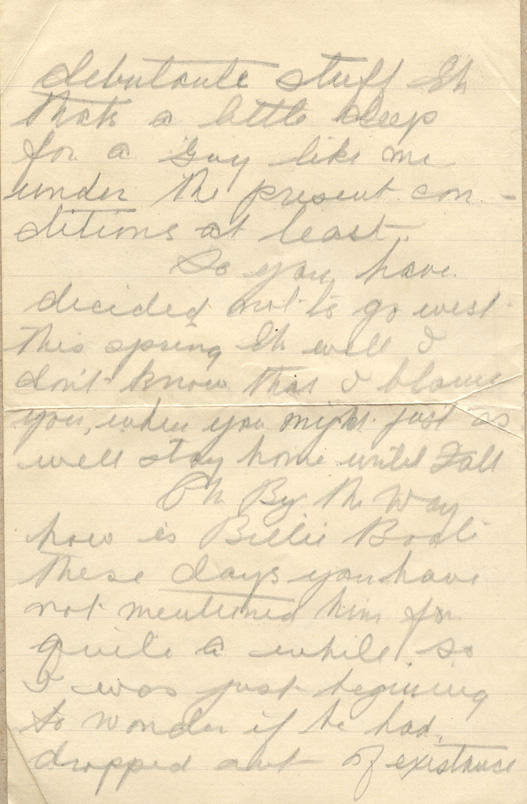 debutante stuff Eh
thats a little deep
for a Guy like me
under the present con-
ditions at least.
So you have
decided not to go west
this spring Eh well I
don't know that I blame
you, when you might just as
well stay home until Fall
Oh By the Way
how is Billie
these days you have
not mentioned him for
quite a while, so
I was just begining
to wonder if he had
dropped out of existance